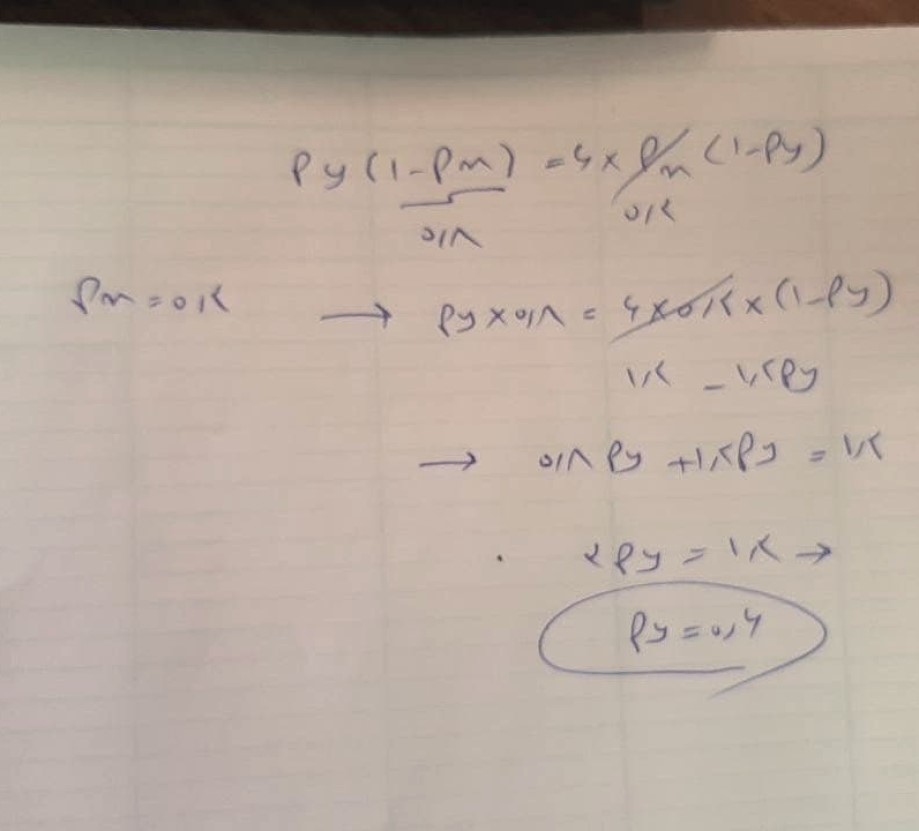 Py (۱-Pm) = ۶ × Pm (۱-Py)
۰٫۸ ۰٫۲
Pm = ۰٫۲ → Py × ۰٫۸ = ۶ × ۰٫۲ × (۱-Py)
۱٫۲ - ۱٫۲Py
→ ۰٫۸ Py + ۱٫۲Py = ۱٫۲
۲Py = ۱٫۲ →
Py = ۰٫۶